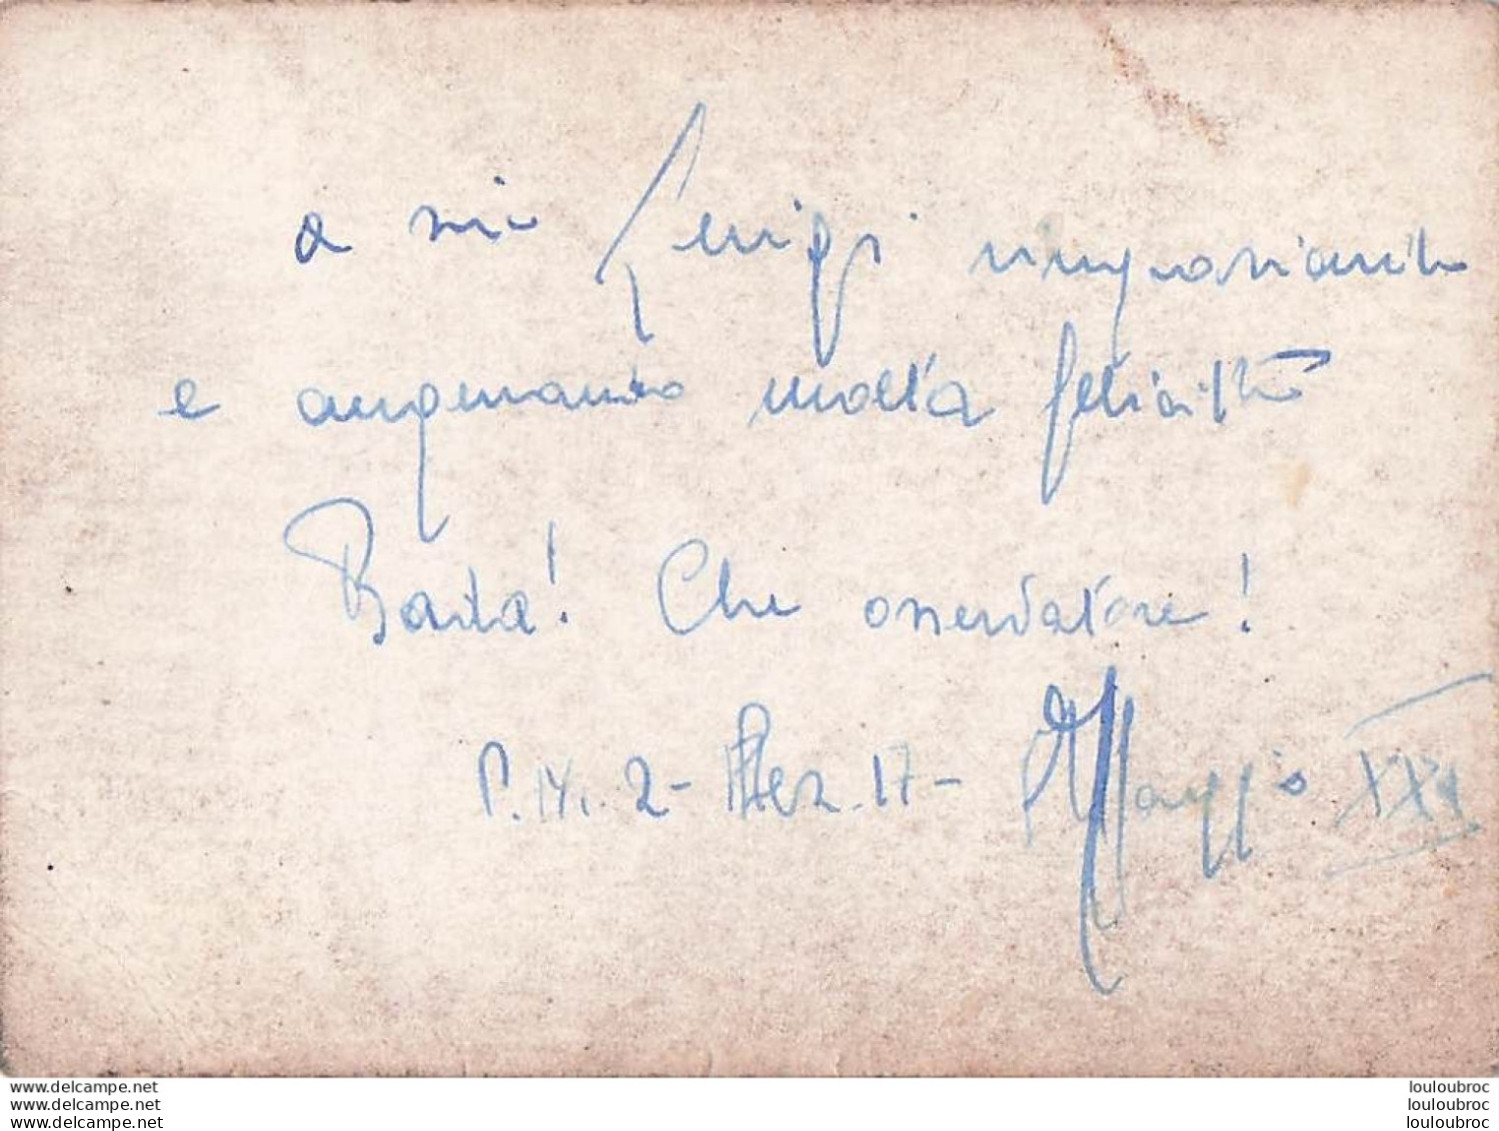 a mio Luigi ringraziando
e augurando molta felicità
Basta! Che osservatore!
P.M. 2 - Sez. 17 - Maggio XXI
www.delcampe.net
www.delcampe.net
www.delcampe.net
louloubroc
louloubroc
louloubroc